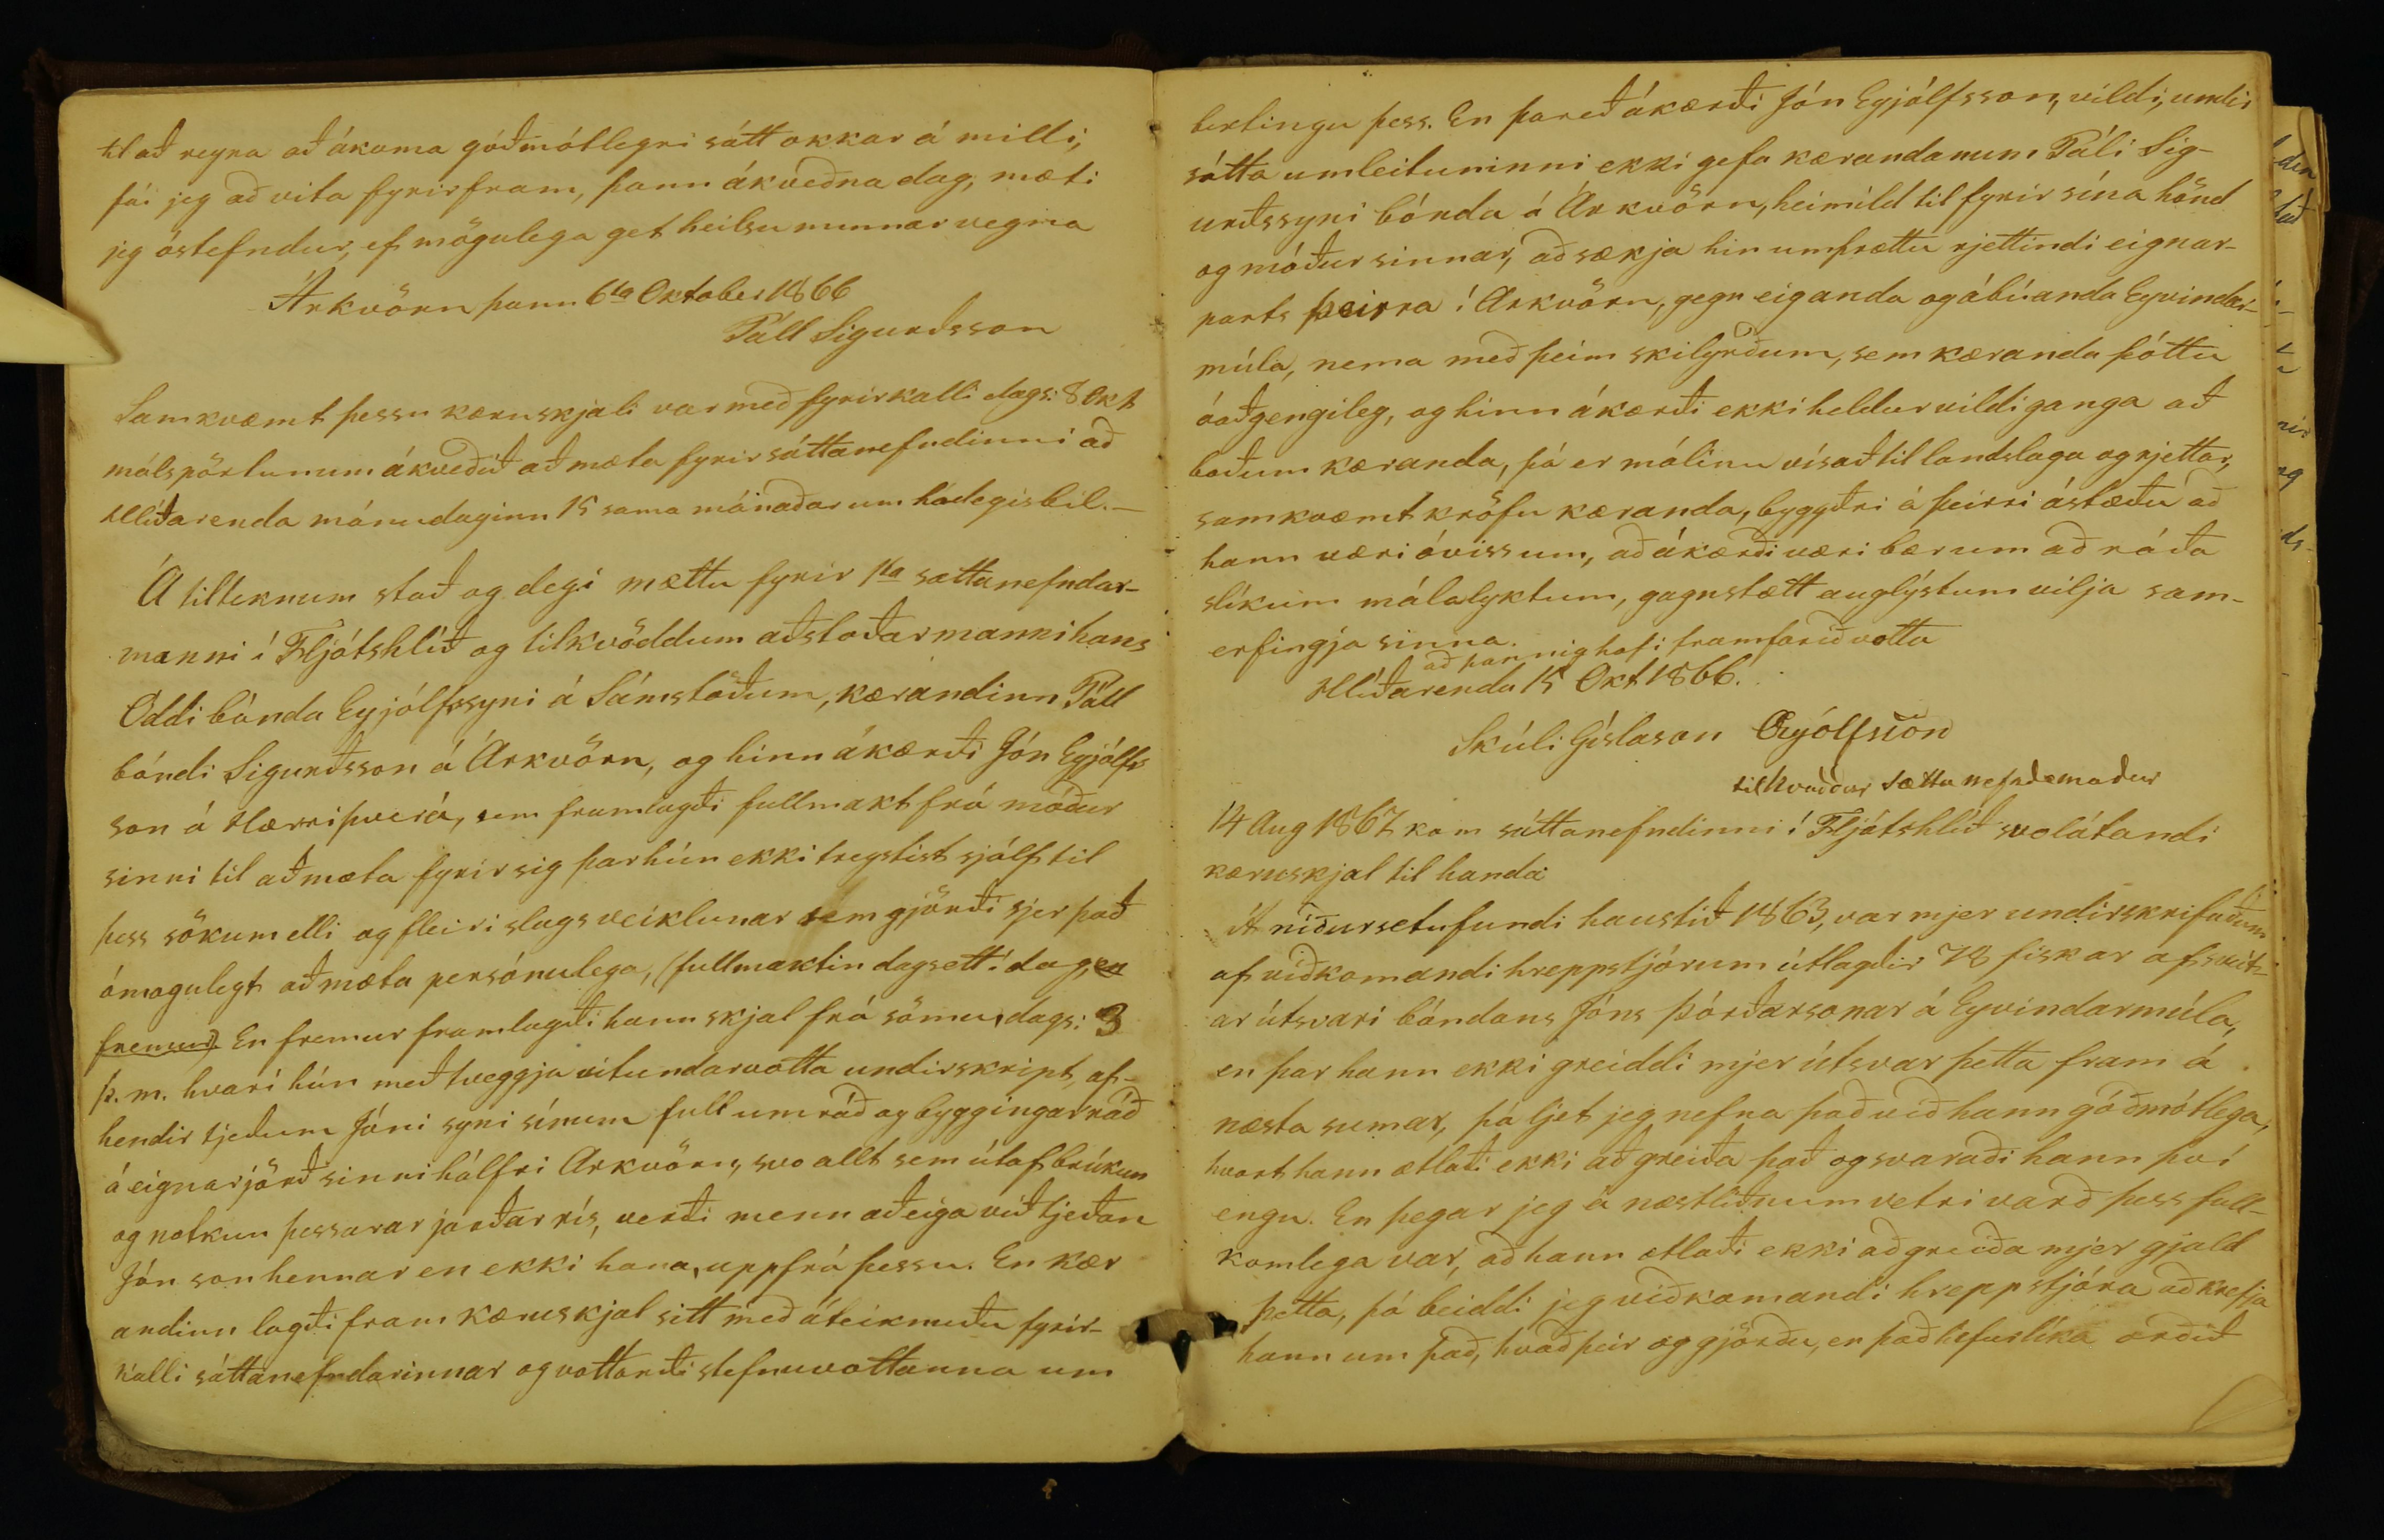 til að reyna að ákoma góðmótlegri sátt okkar á milli,
fái jeg að vita fyrirfram, þann ákveðna dag, mæti
jeg óstefndur, ef mögulega get heilsu minnar vegna
Árkvörn þann 6ta Oktober 1866
Páll Sigurðsson
Samkvæmt þessu kæruskjali var með fyrirkalli dags: 8 Okt
málspörtunum ákveðið að mæta fyrir sáttanefndinni að
Hlíðarenda mánudaginn 15 sama mánaðar um hádegisbil.—
Á tilteknum stað og degi mættu fyrir 1ta sættanefndar-
manni í Fljótshlíð og tilkvöddum aðstoðarmanni hans
Oddi bónda Eyjólfssyni á Sámstöðum, kærandinn Páll
bóndi Sigurðsson á Árkvörn, og hinn ákærði Jón Eyjólfs
son á Hærriþverá, sem framlagði fullmakt frá móður
sinni til að mæta fyrir sig þar hún ekki treystist sjálf til
þess sökum elli og fleiri slags veiklunar sem gjörði sjer það
ómogulegt að mæta persónulega, (fullmaktin dagsett í dag, en
fremur) En fremur framlagði hann skjal frá sömu, dags: 3
þ. m. hvarí hún með tveggja vitundarvotta undirskript, af-
hendir tjeðum Jóni syni sínum full umráð og byggingarráð
á eignarjörð sinni hálfri Árkvörn, svo allt sem útaf brúkun
og notkun þessarar jarðar rís, verði menn að eiga við tjeðan
Jón son hennar en ekki hana, uppfrá þessu. En kær
andinn lagði fram kæruskjal sitt með áteiknuðu fyrir-
kalli sáttanefndarinnar og vottorði stefnuvottanna um
birtingu þess. En þareð ákærði Jón Eyjólfsson, vildi, undir
sátta umleituninni ekki gefa kærandanum Páli Sig-
urðssyni bónda á Árkvörn, heimild til fyrir sína hönd
og móður sinnar, að sækja hin umþrættu rjettindi eignar-
parts þeirra í Árkvörn, gegn eiganda og ábúanda Eyvindar-
múla, nema með þeim skilyrðum, sem kæranda þóttu
óaðgengileg, og hinn ákærði ekki heldur vildi ganga að
boðum kæranda, þá er málinu vísað til landslaga og rjettar,
samkvæmt kröfu kæranda, byggðri á þeirri ástæðu að
hann væri óviss um, að ákærði væri bær um að ráða
slíkum málalyktum, gagnstætt auglýstum vilja sam-
erfingja sinna.
að þannig hafi framfarið votta
Hlíðarenda 15 Okt 1866.
Skúli Gíslason OEyólfsson
tilkvaddur sættanefndamaður
14 Aug 1867 kom sáttanefndinni í Fljótshlíð svolátandi
kæruskjal til handa
Á niðursetufundi haustið 1863, var mjer undirskrifuðum
af viðkomandi hreppstjórum útlagðir 78 fiskar af sveit-
ar útsvari bóndans Jóns Þórðarsonar á Eyvindarmúla,
en þar hann ekki greiddi mjer útsvar þetta fram á
næsta sumar, þá ljet jeg nefna það við hann góðmótlega,
hvort hann ætlaði ekki að greiða það og svaraði hann því
engu. En þegar jeg á næstliðnum vetri varð þess full-
komlega var, að hann ætlaði ekki að greiða mjer gjald
þetta, þá beiddi jeg viðkomandi hreppstjóra að krefja
hann um það, hvað þeir og gjörðu, en það hefur líka orðið